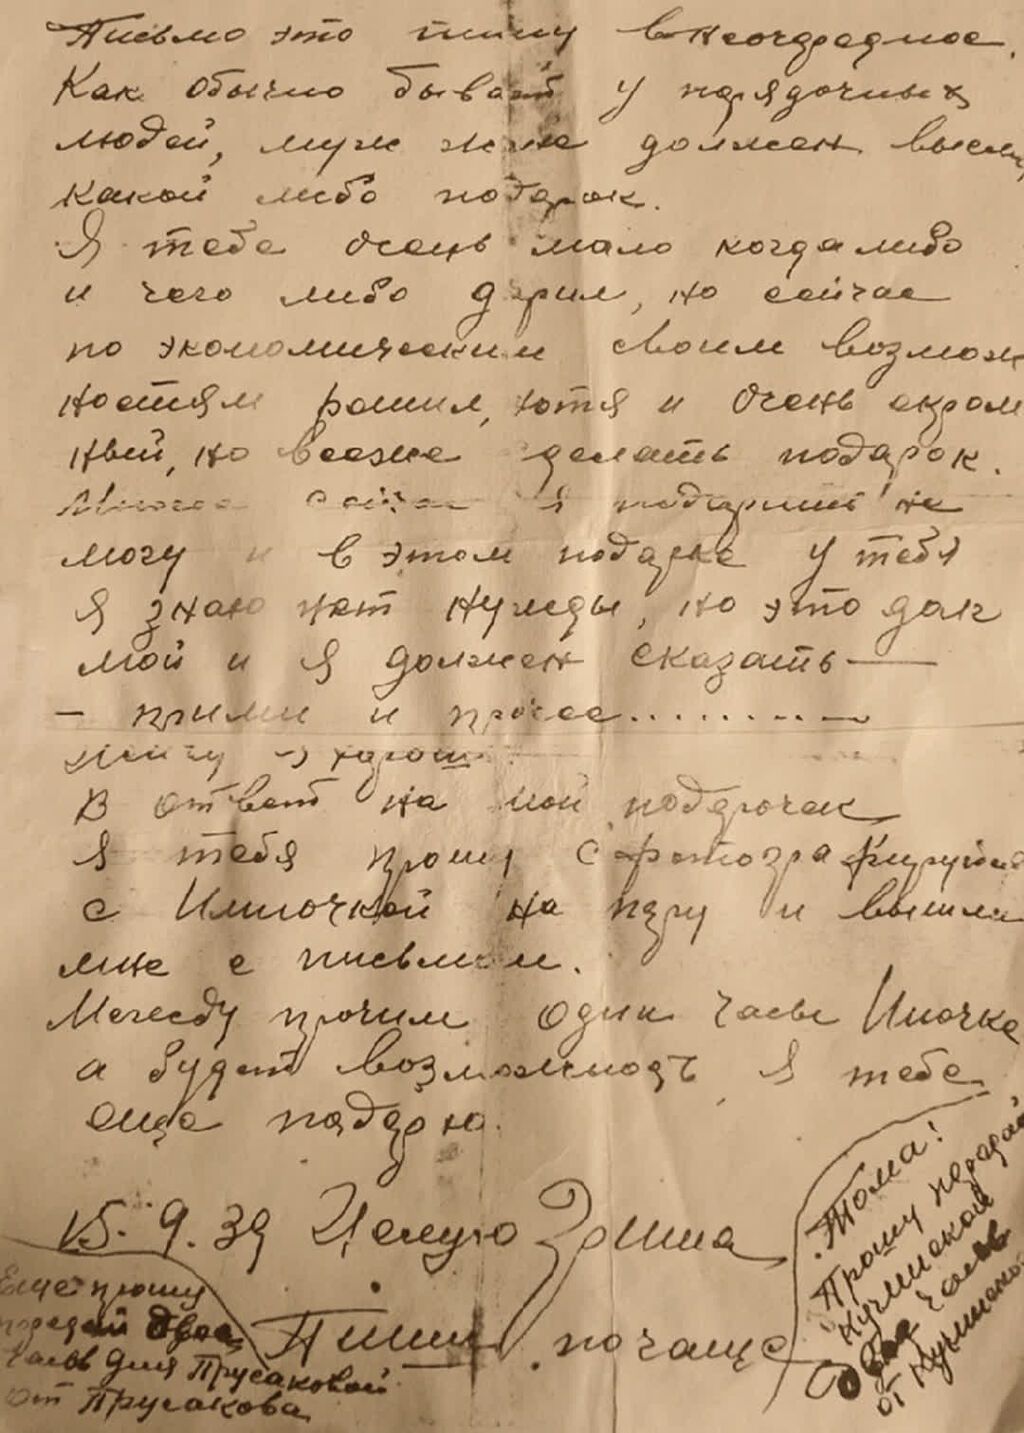 Письмо это пишу внеочередное.
Как обычно бывает у порядочных
людей, муж жене должен
какой либо подарок.
Я тебе очень мало когда либо
и чего либо дарил, но сейчас
по экономическим своим возмож
ностям решил, хотя и очень скром
ный, но всеже сделать подарок.
Многое сейчас я подарить не
могу и в этом подарке у тебя
я знаю нет нужды, но это долг
мой и я должен сказать —
— прими и прочее..........—
я хорош
В ответ на мой подарочек
я тебя прошу сфотографируйся
с Иммочкой на пару и вышли
мне с письмом.
Между прочим одни часы Имочке
а будет возможность я тебе
еще подарю.
15.9.39 Целую Гриша
Пиши почаще
Еще прошу
передай двое
часов для Прусаковой
от Прусакова
Тома!
Прошу передай
Кучминской
двое часов
от Кучминского